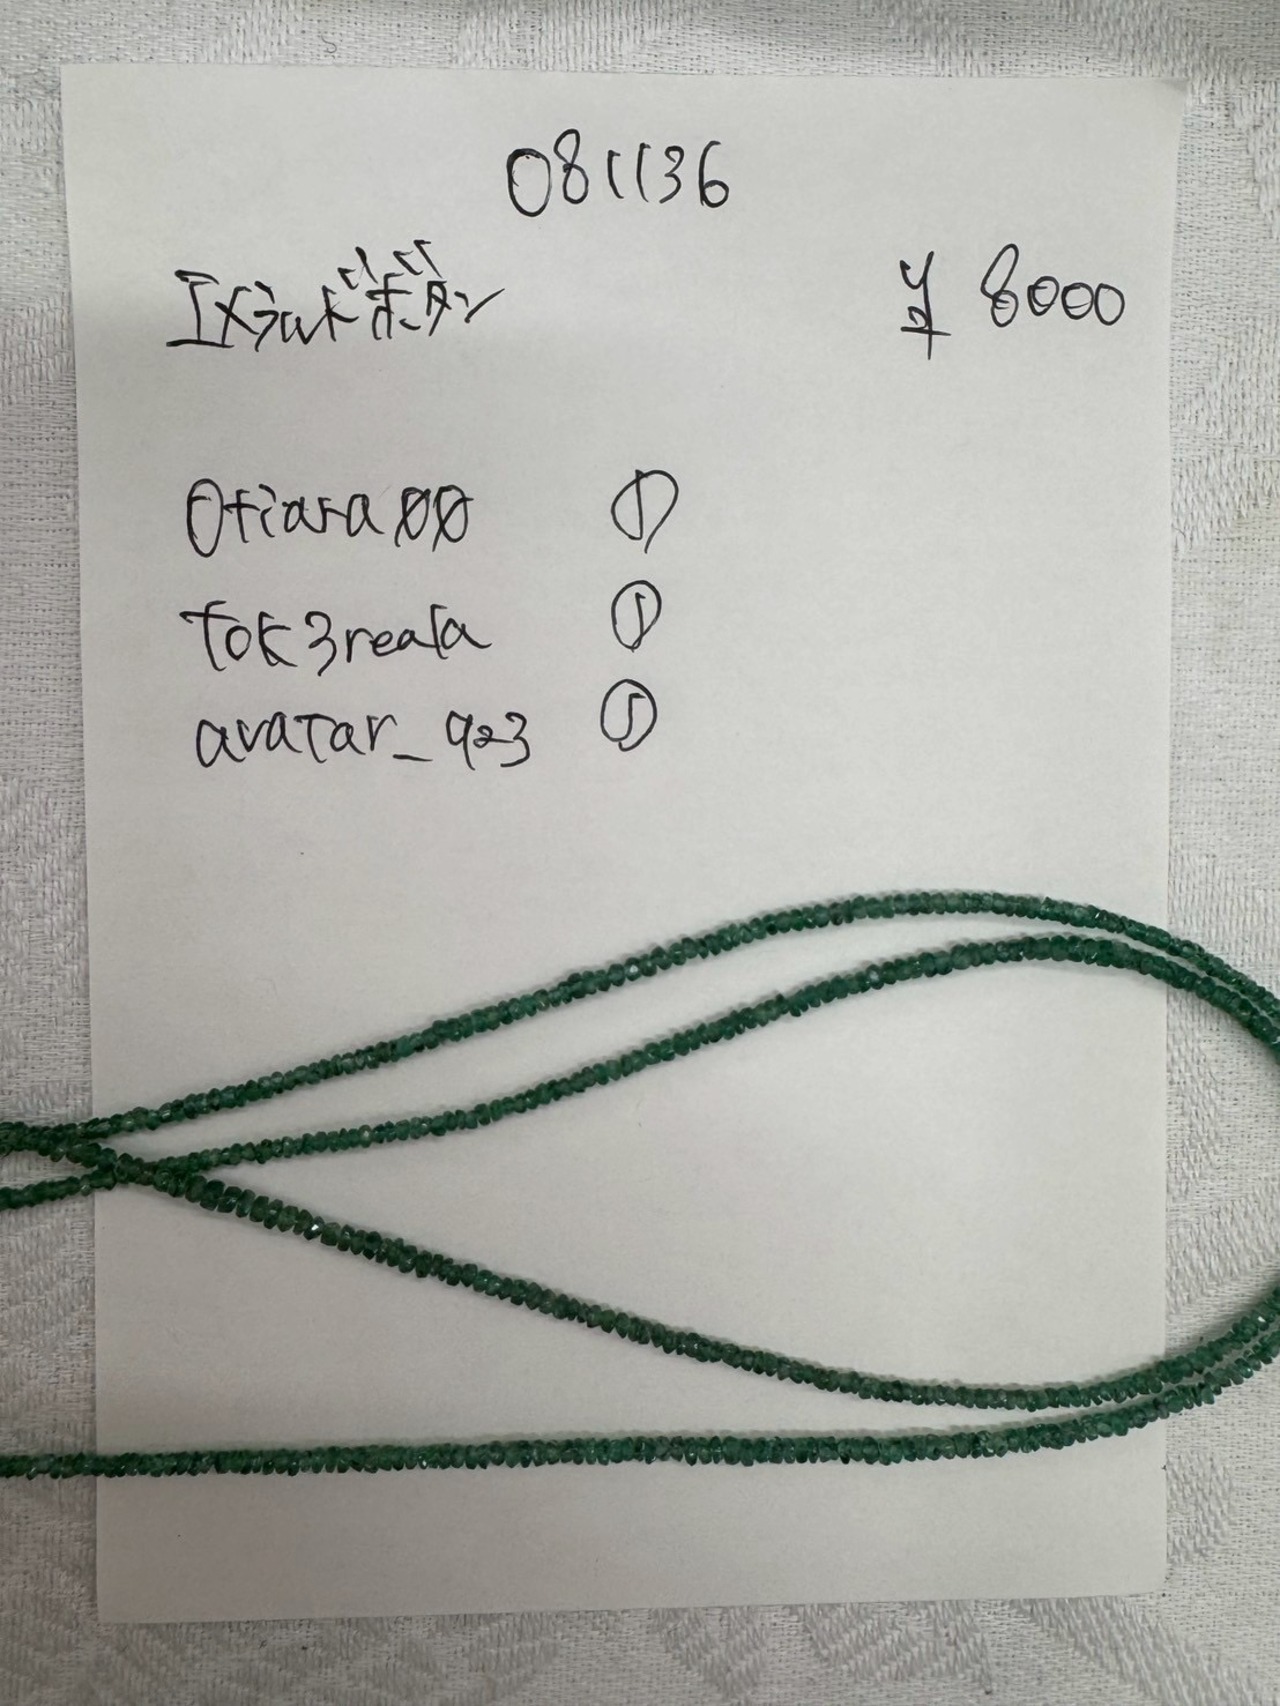 081136
エメラルドボタン ¥ 8000
0tiara00 ①
tok3reala ①
avatar_923 ①